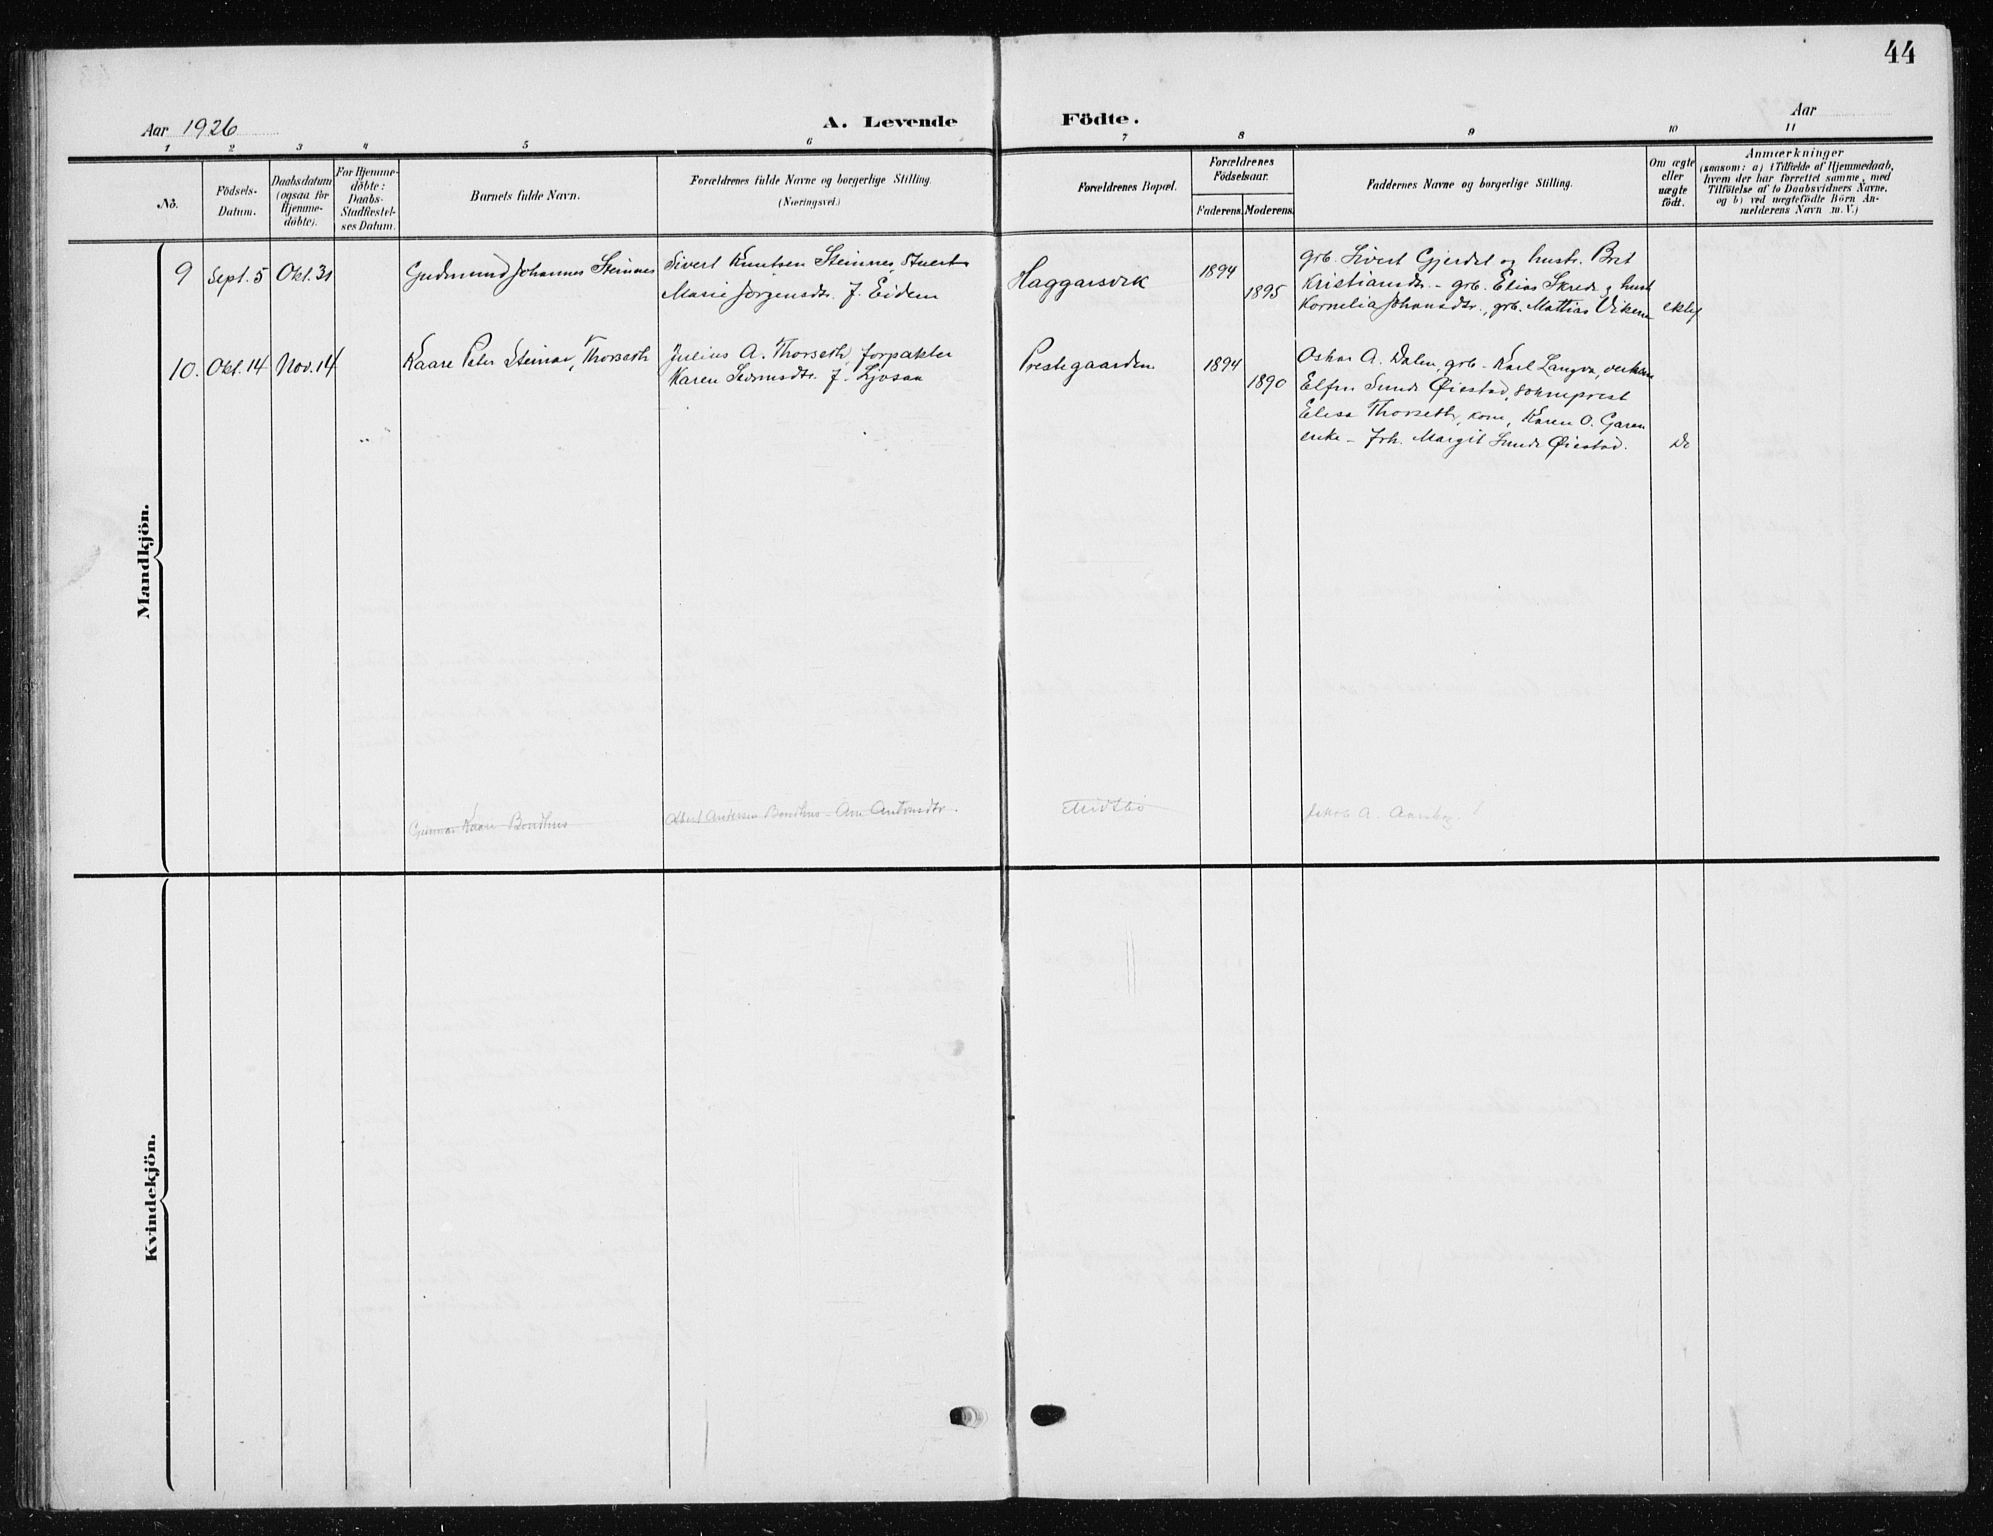 44
Aar 1926
A. Levende Födte.
Aar
1 2 3 4 5 6 7 8 9 10 11
No.
Födsels-
Datum.
Daabsdatum
(ogsaa for
Hjemme-
döbte).
For Hjemme-
döbte:
Daabs-
Stadfæstel-
ses Datum.
Barnets fulde Navn.
Forældrenes fulde Navne og borgerlige Stilling.
(Næringsvei.)
Forældrenes Bopæl.
Forældrenes
Födselsaar.
Faderens. Moderens.
Faddernes Navne og borgerlige Stilling.
Om ægte
eller
uægte
födt.
Anmærkninger
(saasom: a) i Tilfælde af Hjemmedaab,
hvem der har forrettet samme, med
Tilföielse af to Daabsvidners Navne,
og b) ved uægtefödte Börn An-
melderens Navn m. V.)
Mandkjön.
9 Sept. 5 Okt. 31 Gudmund Johannes Steinnes
Sivert Knutsen Steinnes,
Marie Jörgensdtr. f. Eidem
Haggarsvik
1894
1895
grb. Sivert Gjerdet og hustr. Brit
Kristiansdtr. - grb. Elias Skrede og hust
Kornelia Johansdtr., grb. Mattias Viken
ektef
10. Okt. 14 Nov. 14 Kaare Peter Steinar, Thorseth
Julius A. Thorseth, forpakter
Karen f. Ljosaa
Prestegaarden
1894
1890
Oskar A. Dalen, grb. - Karl Langva,
Elfin Sunde Øiestad, sokneprest
Elisa Thorseth, kone, Karen O. Garen
enke - frk. Margit Sunde Øiestad.
Do
Gunnar Kaare Bondhus
Albert Andersen Bondhus - Ane Antonsdtr.
Midtbö
Jakob A.
Kvindekjön.